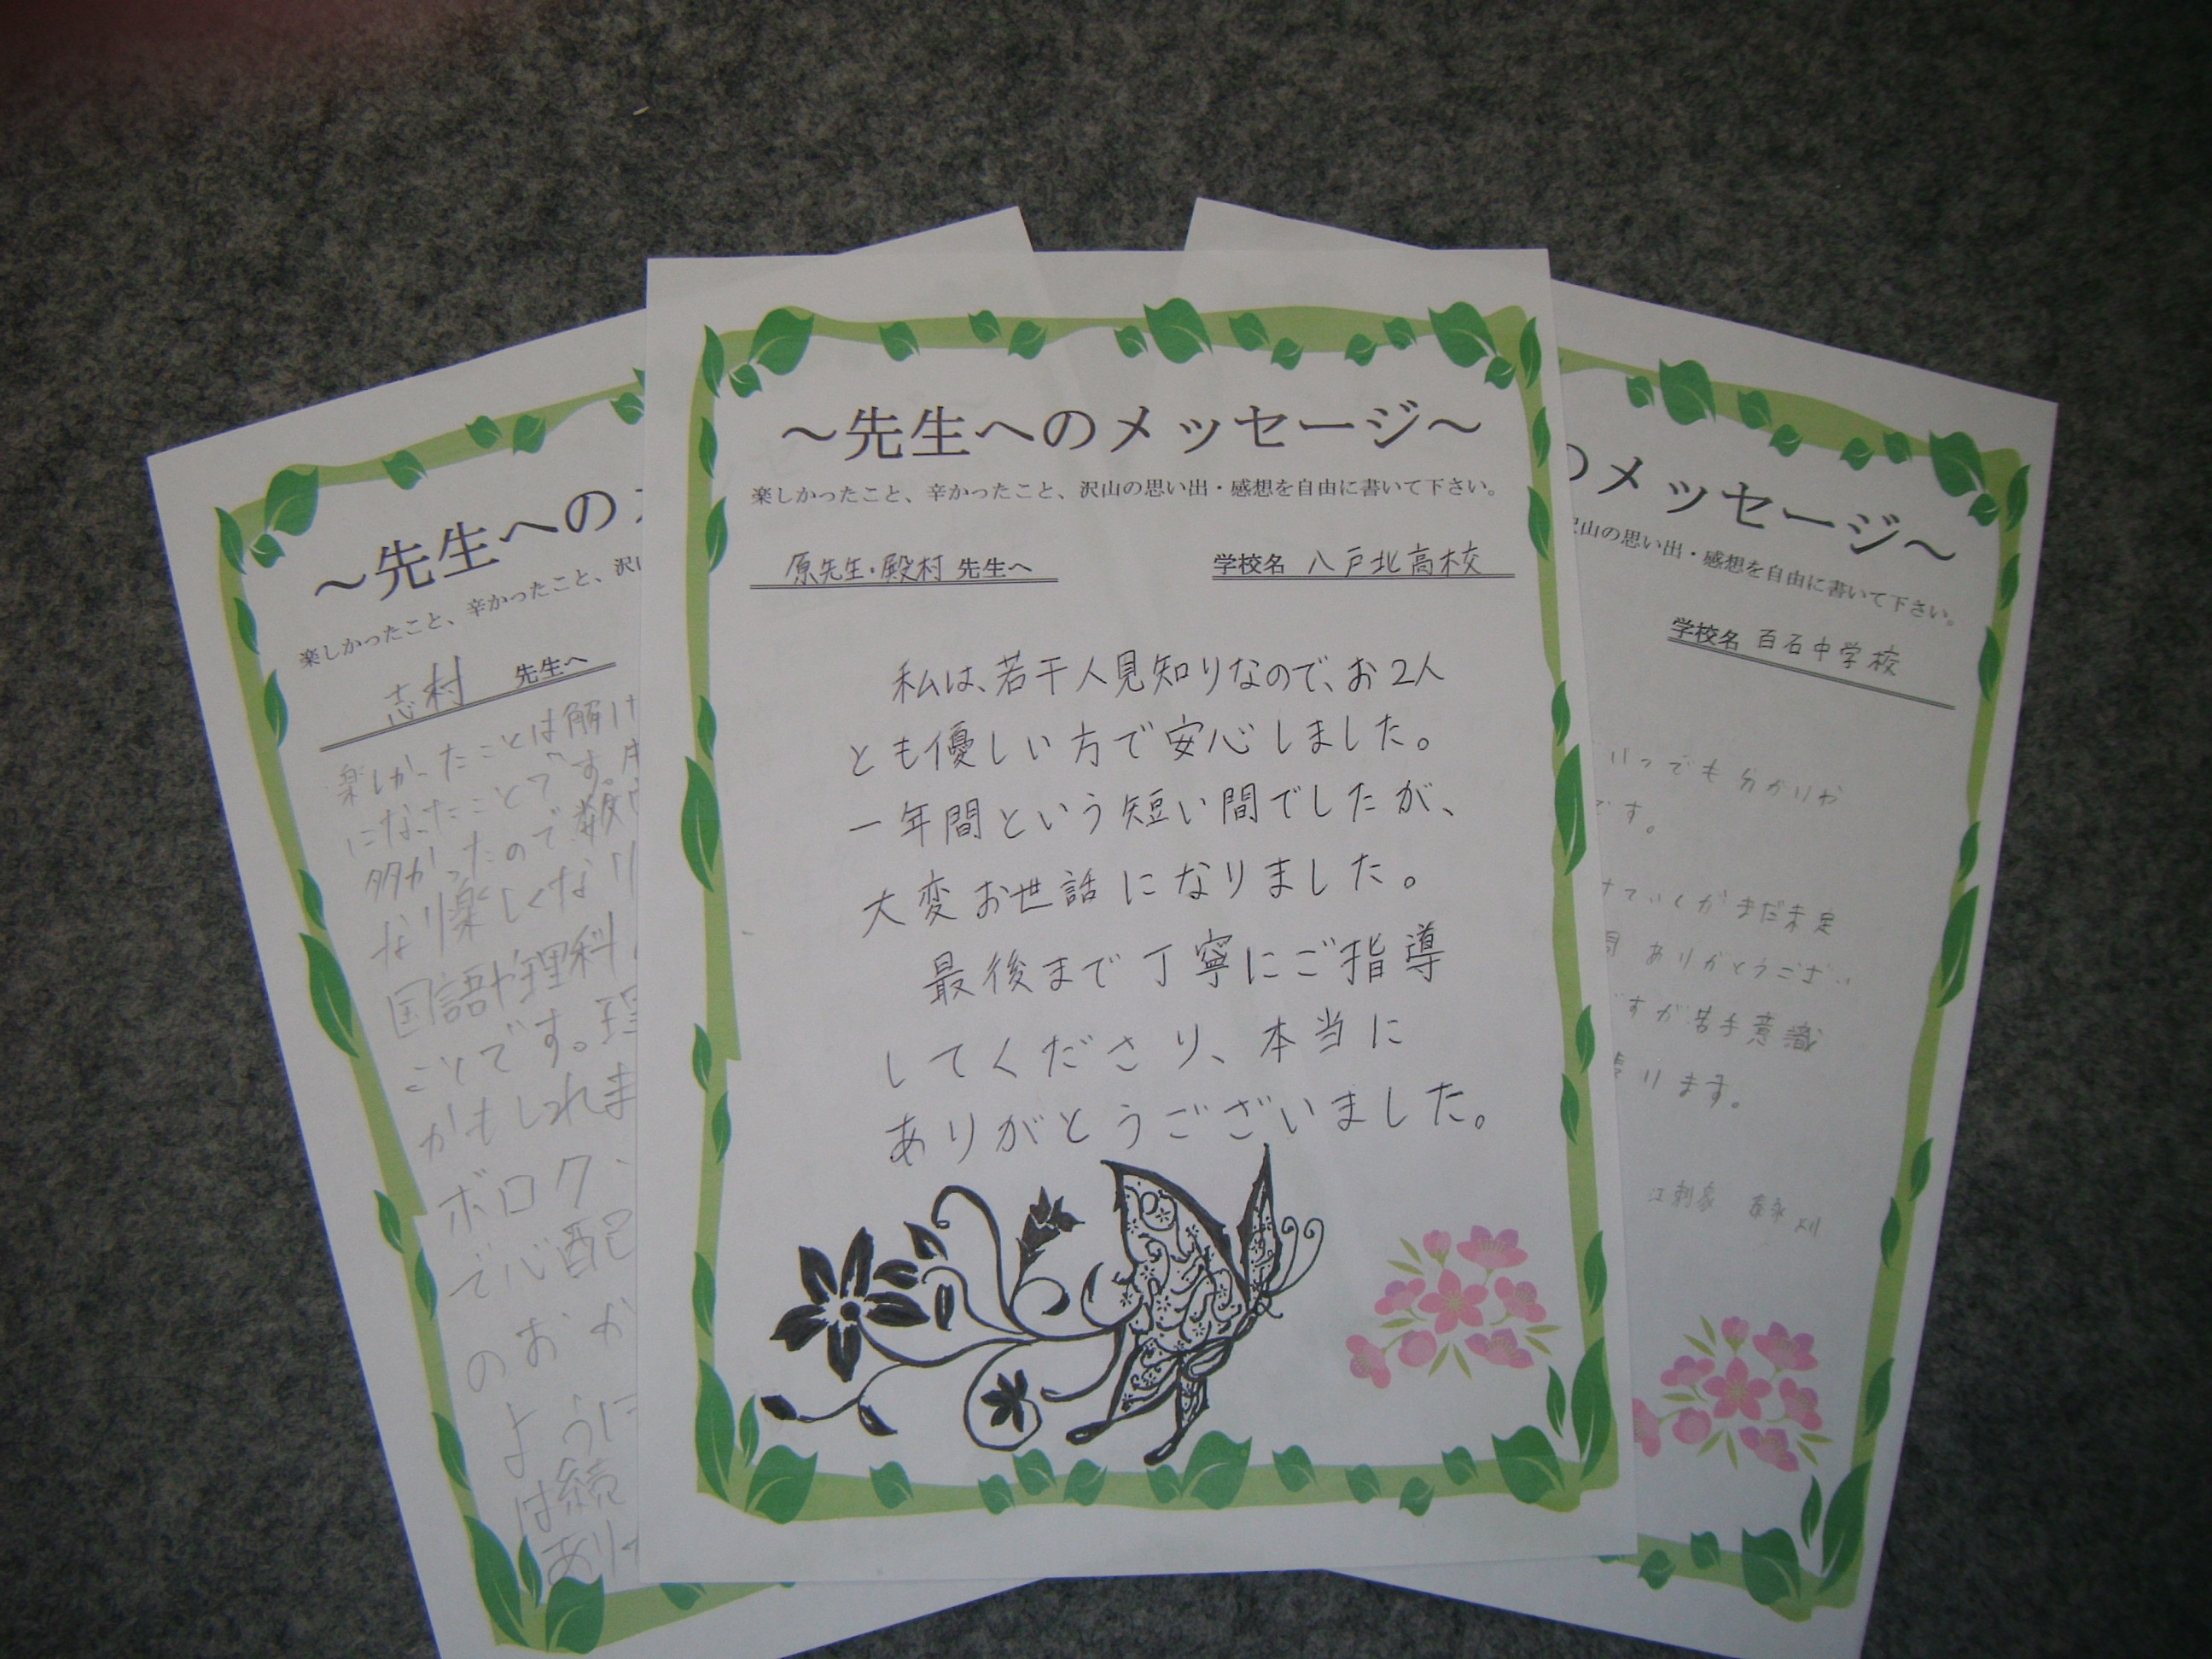 ～先生へのメッセージ～
楽しかったこと、辛かったこと、沢山の思い出・感想を自由に書いて下さい。
原先生・殿村 先生へ
学校名 八戸北高校
私は、若干人見知りなので、お2人
とも優しい方で安心しました。
一年間という短い間でしたが、
大変お世話になりました。
最後まで丁寧にご指導
してくださり、本当に
ありがとうございました。
～先生への
楽しかったこと、辛かったこと、沢
志村 先生へ
楽しかったことは解け
になったことです。
多かったので、数
なり楽しくなり
国語や理科
ことです。理
かもしれま
ボロク
で心配
のおか
ように
は続
あり
のメッセージ～
山の思い出・感想を自由に書いて下さい。
学校名 百石中学校
いつでも分かりや
です。
けていくかまだ未定
間 ありがとうござい
ですが苦手意識
張ります。
江刺家